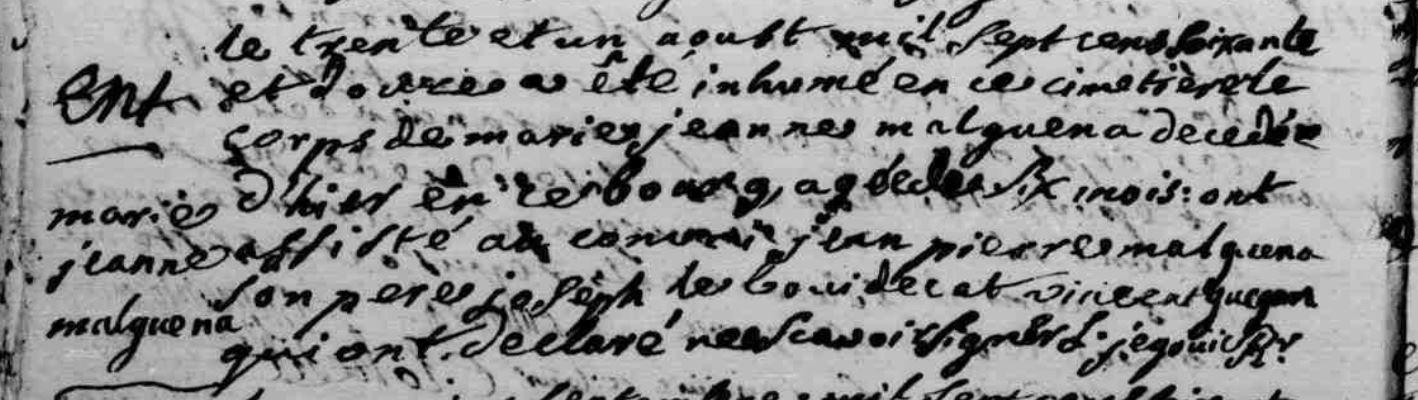 le trente et un aoust mil sept cens soixante
Ent
et douze a été inhumé en ce cimetiere le
corps de marie jeanne malguena decedée
d'hier en ce bourg, agée de six mois: ont
marie
jeanne
assisté au convoi jean pierre malguena
son pere joseph le bouidecat vincent guegan
malguena
qui ont declaré ne scavoir signer